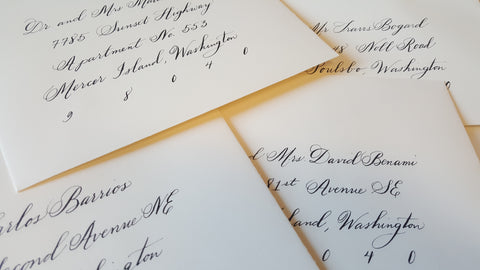 Dr and Mrs
7785 Sunset Highway
Apartment No 553
Mercer Island, Washington
9 8 0 4 0
Mr Travis Bogard
Noll Road
Poulsbo, Washington
Mrs David Benami
81st Avenue SE
Washington
0 4 0
Barrios
Second Avenue NE
Washington